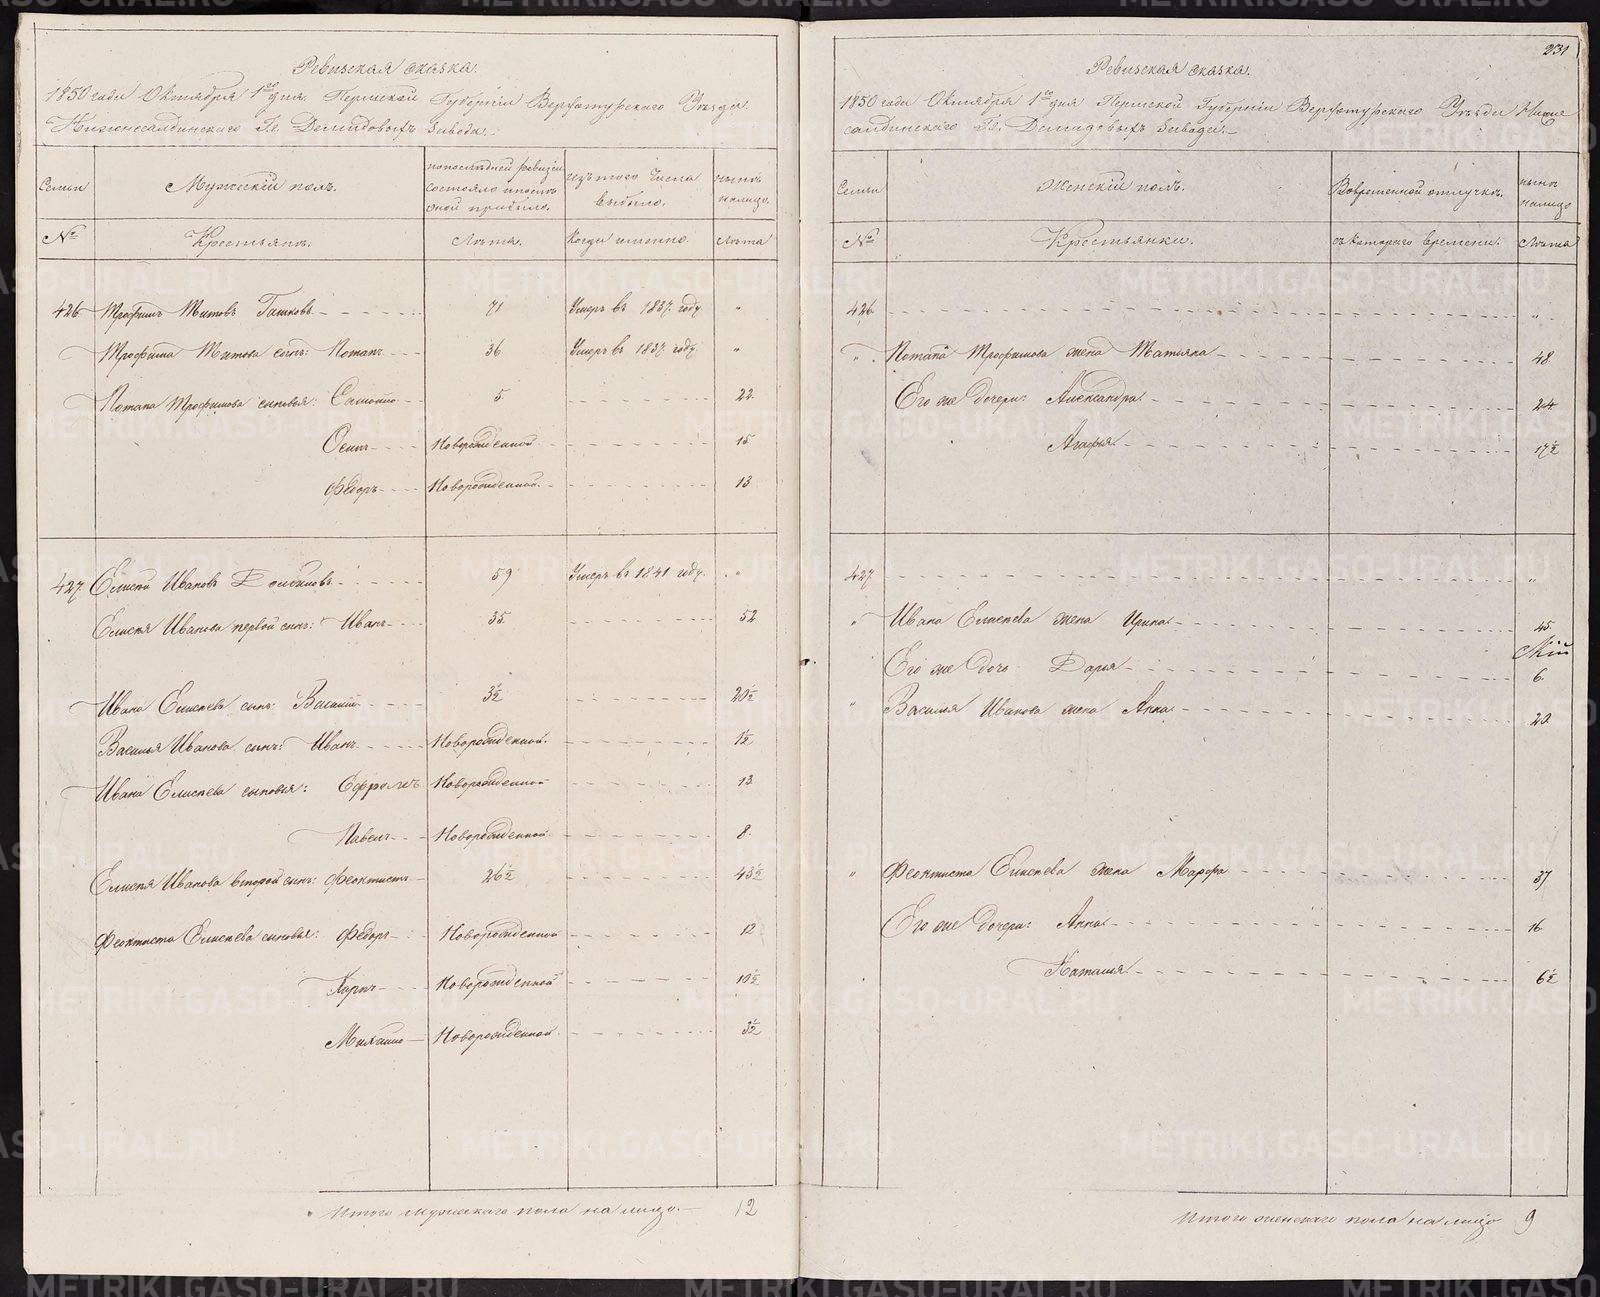 Ревизская сказка.
1850 года Октября 1го дня. Пермской Губернии Верхотурского Уезда
Нижнесалдинского Гг. Демидовыхъ Завода.
Семьи Мужескій полъ. по последней ревизіи состояло и после оной прибыло. изъ того числа выбыло. ныне на лицо.
№ Крестьянъ. Лѣта. Когда именно. Лѣта
426. Трофимъ Титовъ Гашковъ 71 Умеръ въ 1837 году "
Трофима Титова сынъ: Потапъ 36 Умеръ въ 1837 году "
Потапа Трофимова сыновья: Самойло 5 22.
Осипъ Новорожденной 15
Федоръ Новорожденной 13
427. Елисей Ивановъ 59 Умеръ въ 1841 году. "
Елисея Иванова первой сынъ: Иванъ 35 52
Ивана Елисеева сынъ: Василий 3½ 20½
Василья Иванова сынъ: Иванъ Новорожденной 1½
Ивана Елисеева сыновья: Ефремъ Новорожденной 13
Павелъ Новорожденной 8.
Елисея Иванова второй сынъ: Феоктистъ 26½ 43½
Феоктиста Елисеева сыновья: Федоръ Новорожденной 12
Карпъ Новорожденной 10½
Михайло Новорожденной 3½
Итого мужескаго пола на лицо. 12
231
Ревизская сказка.
1850 года Октября 1го дня Пермской Губернии Верхотурского Уезда Нижне
салдинскаго Гг. Демидовыхъ Завода.
Семьи Женскій полъ. Во временной отлучкѣ. ныне на лицо
№ Крестьянки. съ котораго времени. Лѣта
426. "
" Потапа Трофимова жена Татьяна 48
Его же дочери: Александра 24
Агафья 17½
427. "
" Ивана Елисеева жена Ирина 45
Его же дочь Дарья 6.
" Василья Иванова жена Анна 20.
" Феоктиста Елисеева жена Марфа 37
Его же дочери: Анна 16
Наталья 6½
Итого женскаго пола на лицо 9
METRIKI.GASO-URAL.RU